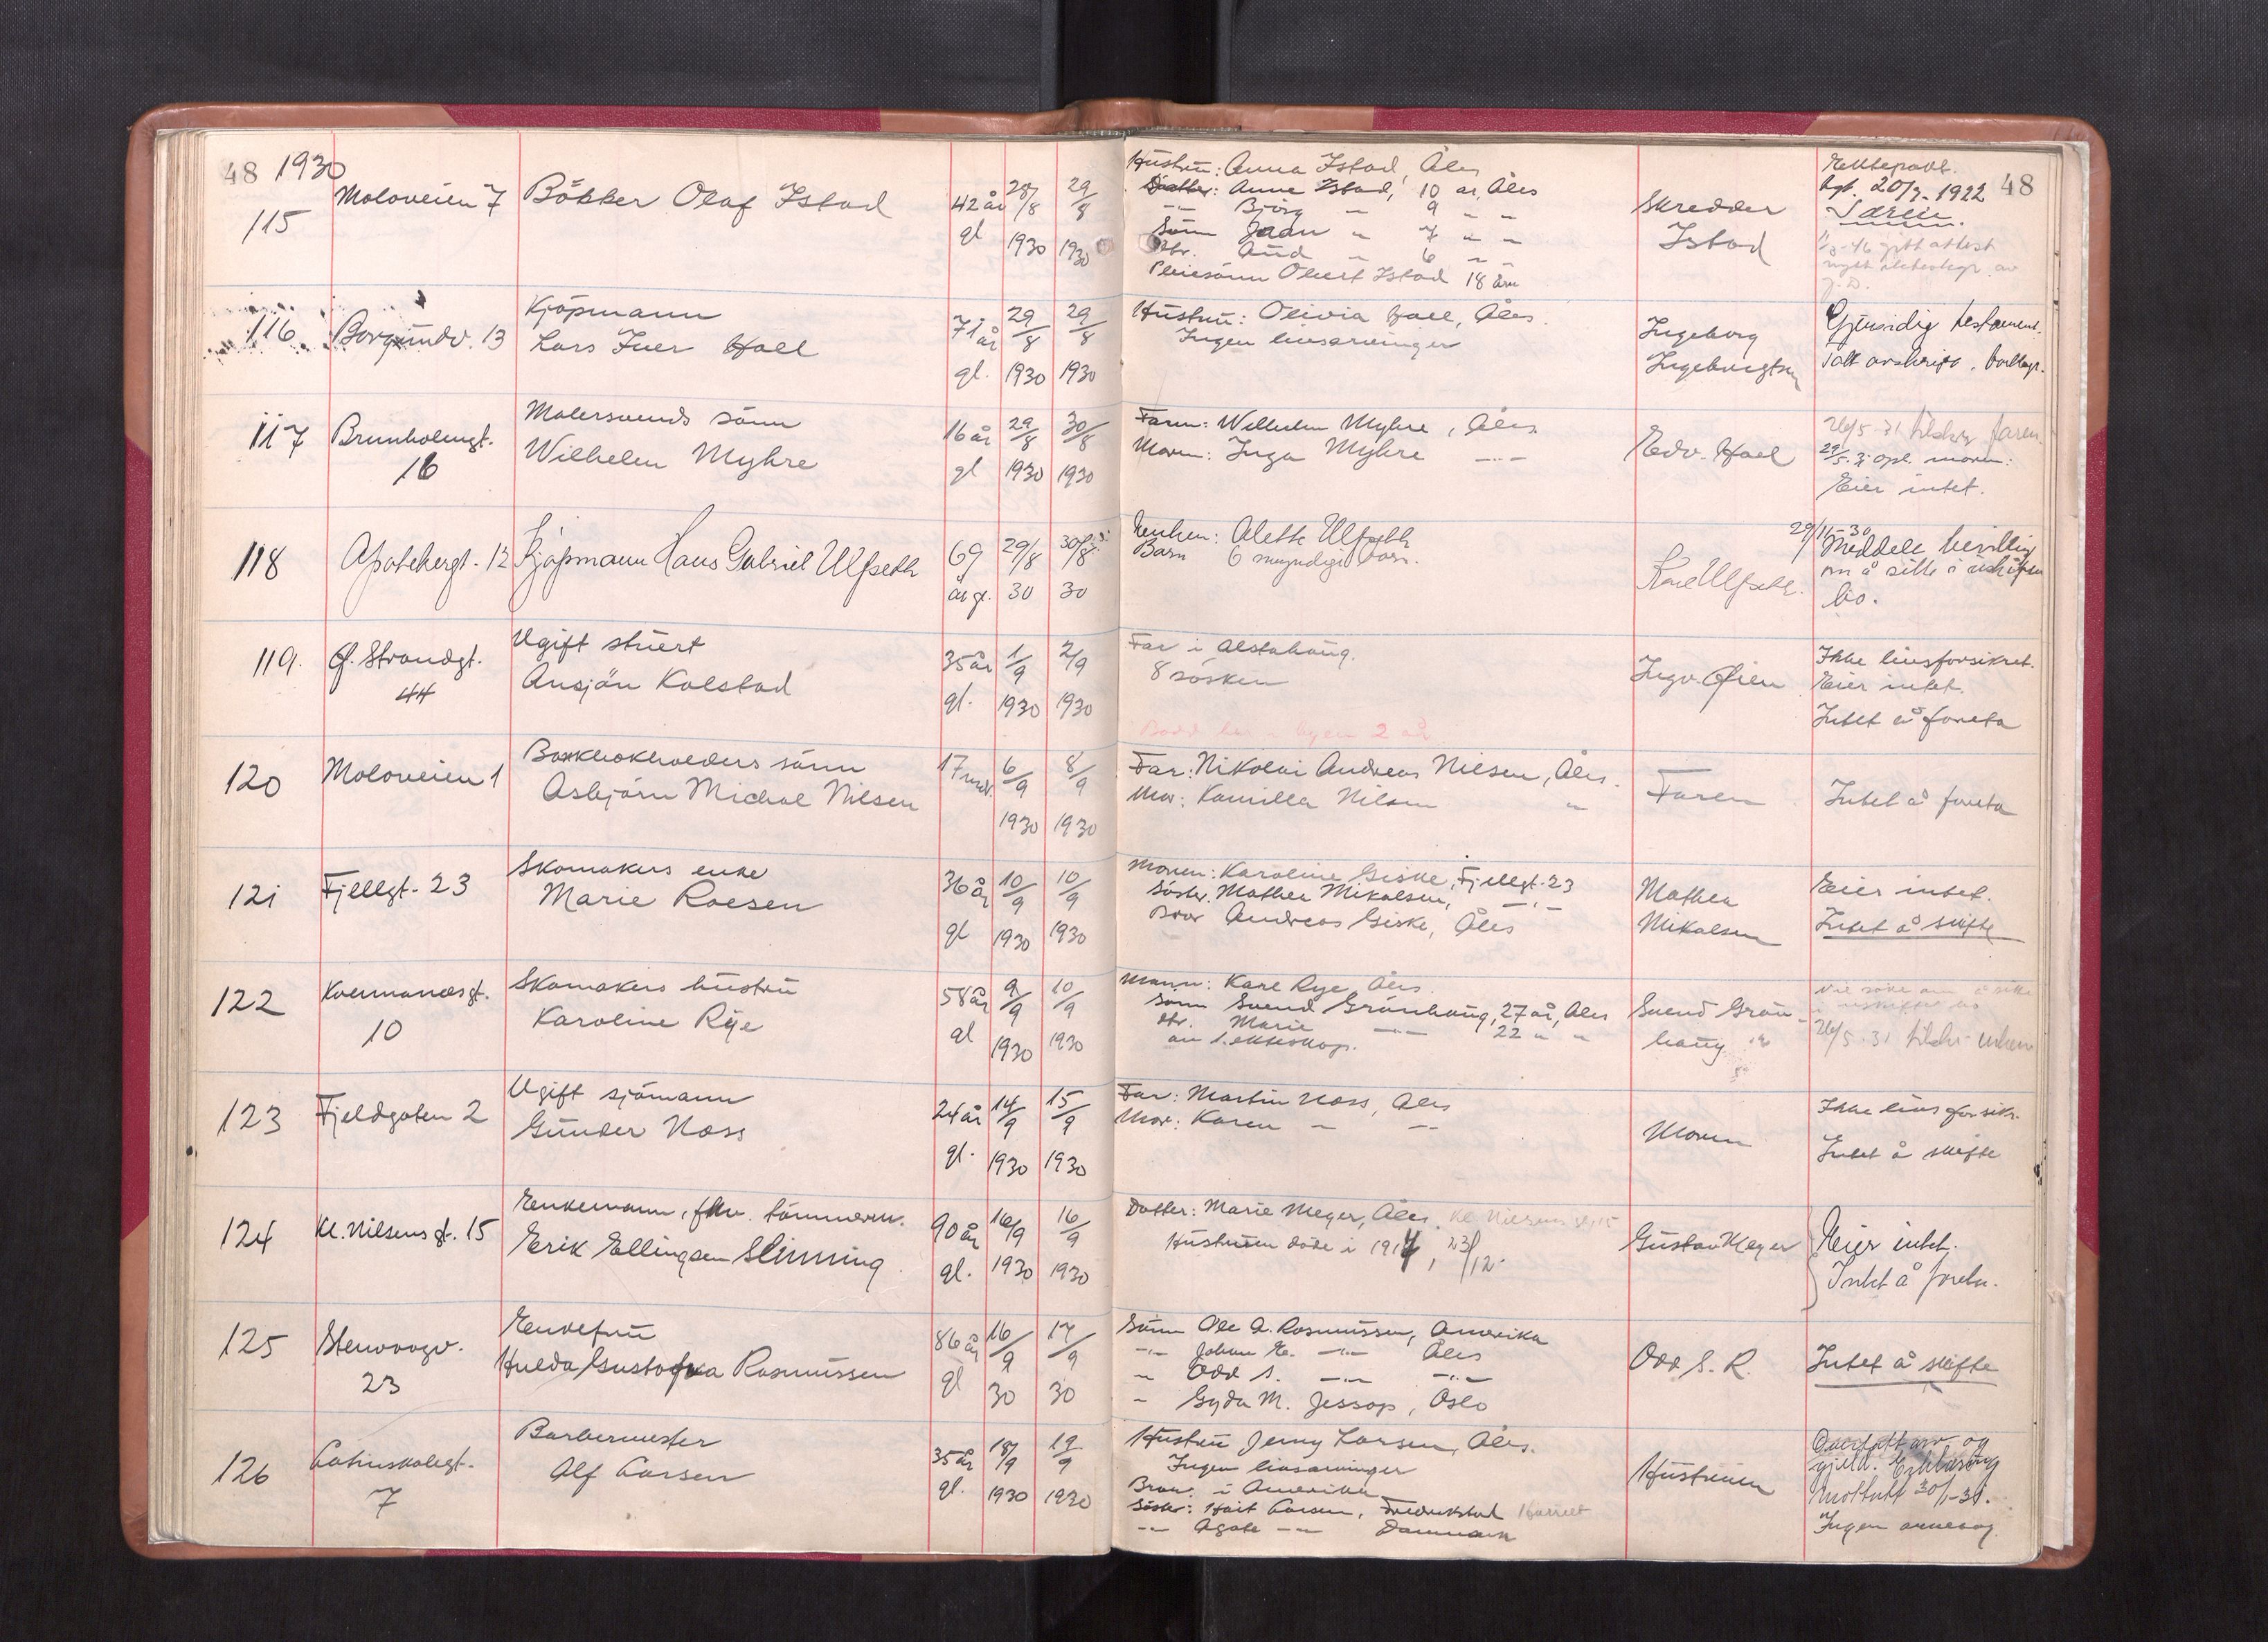 48 1930
115 Moloveien 7 Bökker Olaf Istad 42 år gl 28/8 1930 29/8 1930
Hustru: Anna Istad, Åles
Datter: Anne Istad, 10 år, Åles
-"- Björg " 9 " "
Sönn Jaan " 7 " "
Dtr. Aud " 6 " "
Pleiesönn Olbert Istad 18 år
Skredder
Istad
Ektepakt.
tgl. 20/7-1922 48
Særeie.
116 Borgundv. 13 Kjöpmann
Lars Iver Hoel 71 år gl. 29/8 1930 29/8 1930
Hustru: Olivia Hoel, Åles.
Ingen livsarvinger
Ingeborg
Ingebrigtsen
Gjensidig testament.
Tatt avskrift
117 Brunholmgt. 16 Malersvends sönn
Wilhelm Myhre 16 år gl 29/8 1930 30/8 1930
Faren: Wilhelm Myhre, Åles
Moren: Inga Myhre -"-
Edv. Hoel
26/5 31 tilskr. faren.
29/5. 31 opl. moren:
Eier intet.
118 Apotekergt. 12 Kjöpmann Hans Gabriel Ulfseth 69 år gl. 29/8 30 30/8 30
Enken: Alette Ulfseth
Barn 6 myndige barn.
Karl Ulfseth.
29/11-30
Meddelt bevilling
om å sitte i uskiftet
bo.
119. Ö. Strandgt. 44 Ugift stuert
Ansjön Kolstad 35 år gl. 1/9 1930 2/9 1930
Far i Alstahaug.
8 sösken
Bodd her i byen 2 år.
Ingv. Öien
Ikke livsforsikret.
Eier intet.
Intet å foreta
120 Moloveien 1 Bankbokholders sönn
Asbjörn Michal Nilsen 17 mdr. 6/9 1930 8/9 1930
Far: Nikolai Andreas Nilsen, Åles.
Mor: Kamilla Nilsen "
Faren
Intet å foreta
121 Fjellgt. 23 Skomakers enke
Marie Roesen 36 år gl 10/9 1930 10/9 1930
Moren: Karoline Giske, Fjellgt. 23
Söster Mathea Mikalsen, -"-
Bror Andreas Giske, Åles
Mathea
Mikalsen
Eier intet.
Intet å skifte
122 10 Skomakers hustru
Karoline Rye 58 år gl 9/9 1930 10/9 1930
Mann: Karl Rye Åles.
Sönn Svend Grönhaug, 27 år, Åles
dtr. Marie -"- 22 " "
av 1. ekteskap.
Svend Grön-
haug
26/5.31 tilskr.
123 Fjeldgaten 2 Ugift sjömann
Gunder Noss 24 år gl. 14/9 1930 15/9 1930
Far: Martin Noss, Åles
Mor: Karen " -"-
Moren
Ikke livsforsikr.
Intet å skifte
124 Kl. Nilsens gt. 15 Enkemann, fhv. tömmerm.
Erik Ellingsen Slinning 90 år gl. 16/9 1930 16/9 1930
Datter: Marie Meyer, Åles. Kl. Nilsens gt 15
Hustruen döde i 1914, 23/12.
Gustav Meyer
Eier intet.
Intet å foreta.
125 Stenvaagv. 23 Enkefru
Hulda Gustafva Rasmussen 86 år gl 16/9 30 17/9 30
Sönn Ole A. Rasmussen, Amerika
-"- Johan E. -"- Åles
" Odd S. -"- -"-
" Gyda M. Jessop, Oslo
Odd S. R.
Intet å skifte
126 Latinskolegt. 7 Barbermester
Alf Larsen 35 år gl. 18/9 1930 19/9 1930
Hustru Jenny Larsen, Åles.
Ingen livsarvinger
Bror: i Amerika
Söster: Hait Larsen, Fredrikstad Harriet
-"- Agate -"- Danmark
Hustruen
Overtatt arv og
gjeld. Erklæring
mottatt 30/1-31.
Ingen